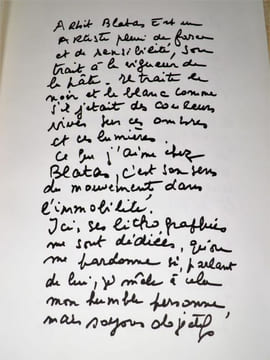 Arbit Blatas est un
artiste plein de force
et de sensibilité, son
trait à la vigueur de
la pâte. Il traite le
noir et le blanc comme
s'il jetait des couleurs
vives sur ces ombres
et ces lumières.
Ce que j'aime chez
Blatas, c'est son sens
du mouvement dans
l'immobilité.
Ici, ses lithographies
me sont dédiées, qu'on
me pardonne si, parlant
de lui, je mêle à cela
mon humble personne,
mais soyons objectifs